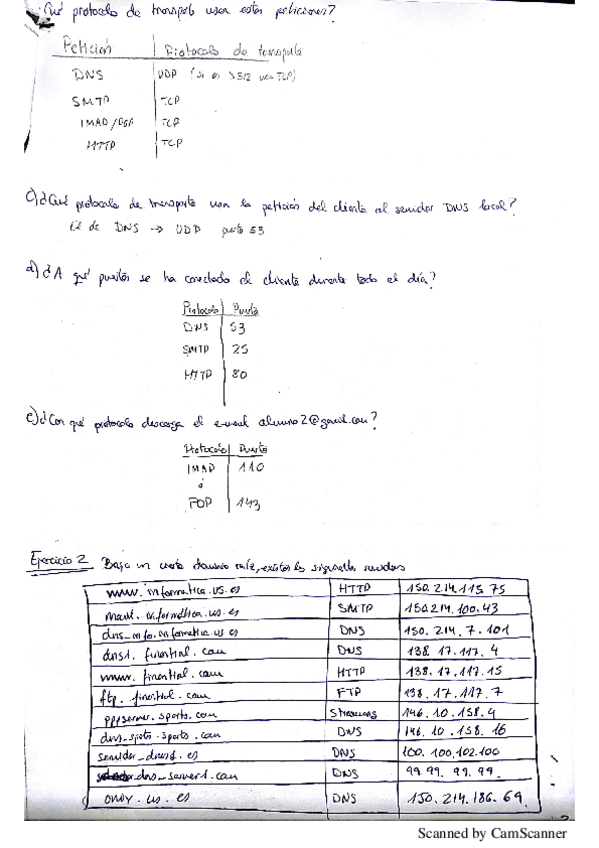 ¿Qué protocolo de transporte usan estas peticiones?
Petición Protocolo de transporte
DNS UDP (si es >512 usa TCP)
SMTP TCP
IMAP/POP TCP
HTTP TCP
c) ¿Qué protocolo de transporte usa la petición del cliente al servidor DNS local?
El de DNS → UDP puerto 53
d) ¿A qué puertos se ha conectado el cliente durante todo el día?
Protocolo Puerto
DNS 53
SMTP 25
HTTP 80
e) ¿Con qué protocolo descarga el e-mail alumno2@gmail.com?
Protocolo Puerto
IMAP 110
ó
POP 143
Ejercicio 2 Bajo un cierto dominio raíz, existen los siguientes servidores
www.informatica.us.es HTTP 150.214.115.75
mail.informatica.us.es SMTP 150.214.100.43
dns_info.informatica.us.es DNS 150.214.7.101
dns1.finantial.com DNS 138.17.117.4
www.finantial.com HTTP 138.17.117.15
ftp.finantial.com FTP 138.17.117.7
pptserver.sports.com Streaming 146.10.158.4
dns_spots.sports.com DNS 146.10.158.16
servidor_dnsref.es DNS 100.100.102.100
dns_server1.com DNS 99.99.99.99
onny.us.es DNS 150.214.186.69
Scanned by CamScanner